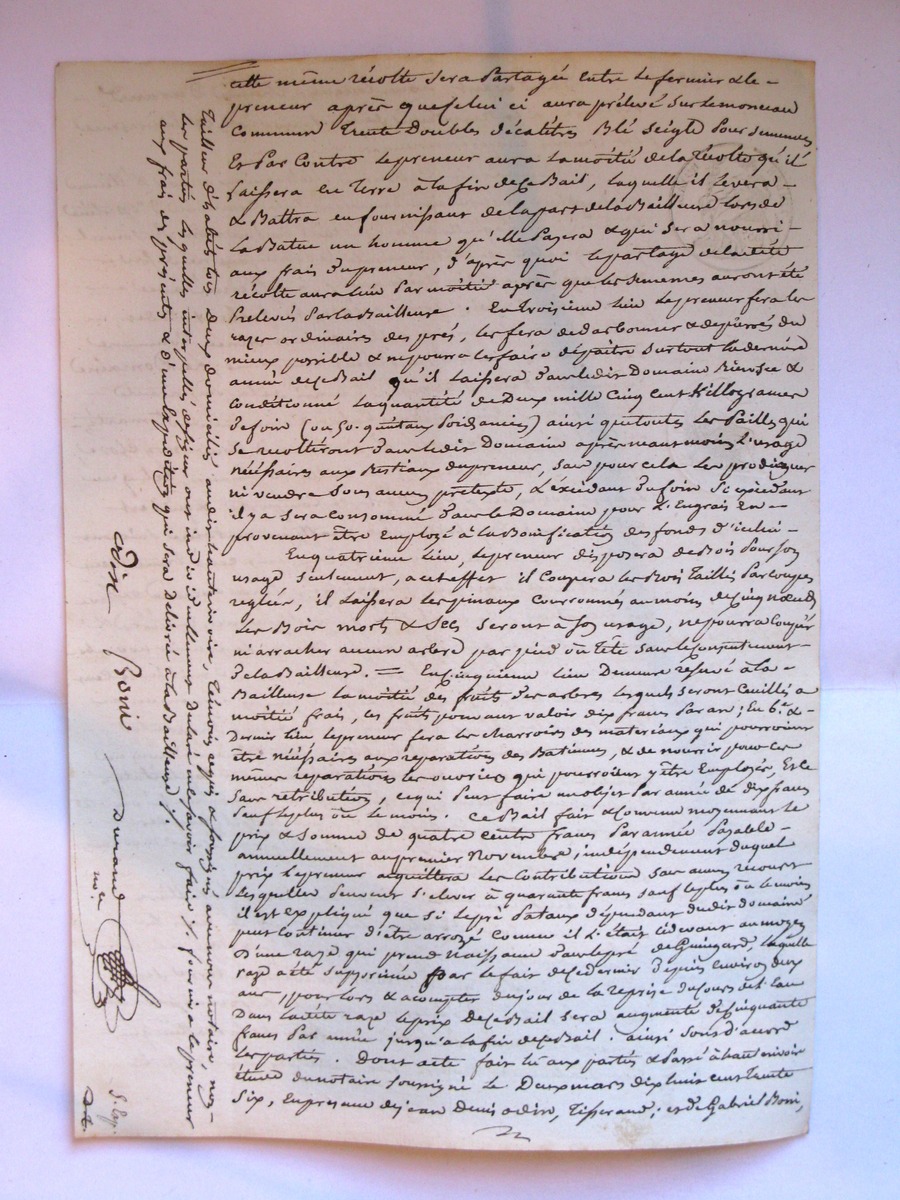 cette même récolte sera Partagée entre le fermier & le -
preneur après que celui ci aura prélevé sur le monceau
Commun trente Doubles décalitres Blé seigle pour semences
Et Par Contre le preneur aura la moitié de la récolte qu'il
Laissera en Terre à la fin de ce Bail, laquelle il levera -
& Battra en fournissant de la part de la Bailleuse lors de
La Batue un homme qu'elle Payera & qui sera nourri -
aux frais du preneur, d'après quoi le partage de la dite
récolte aura lieu Par moitié après que les semences auront été
Prélevés Par la Bailleuse. En troisieme lieu le preneur fera les
razes ordinaires des prés, les fera dedarbonner & épierrés du
mieux possible & ne pourra les faire dépaître surtout la dernière
année de ce Bail qu'il laissera dans ledit Domaine &
Conditionné la quantité de Deux mille Cinq Cent Killogrames
de foin (ou 50. quintaux Poids ancien) ainsi que toutes les Pailles qui
se récolteront dans ledit Domaine après néanmoins l'usage
néssaires aux Bestiaux du preneur, sans pour cela les prodiguer
ni vendre sous aucun prétexte, & l'éxcédant du foin si éxcédant
il y a sera Consommé dans le Domaine pour l'Engrais en -
provenant être Employé à la Bonification des fonds d'icelui -
En quatrieme lieu, le preneur disposera de Bois Pour son
usage seulement, a cet effet il Coupera les Bois Taillis Par Coupes
reglées, il laissera les pinaux Couronnés au moins de Cinq nœuds
Les Bois morts & secs seront à son usage, ne pourra Couper
ni arracher aucun arbre par pied ou tête sans le Consentement -
de la Bailleuse. = En Cinquieme lieu Demeure réservé à la -
Bailleuse la moitié des fruits des arbres lesquels seront Cueillis a
moitié frais, les fruits pouvant valoir dix francs Par an; En 6.e & -
Dernier lieu le preneur fera les charrois des materiaux qui pourroient
être néssaires aux réparations des Batimens, & de nourrir pour ces
mêmes réparations les ouvriers qui pourroient y être Employés, Et ce
sans rétribution, ce qui Peut faire un objet Par année de dix francs
sauf le plus ou le moins. Ce Bail fait & Convenu moyennant le
prix & somme de quatre cents francs Par année Payable -
annuellement au premier Novembre, indépendament duquel
prix le preneur acquittera les Contributions sans aucun recours
lesquelles Peuvent s'elever à quarante francs sauf le plus ou le moins
il est expliqué que si le pré Pataux dépendant dudit domaine
peut Continuer d'être arrozé Comme il l'était cidevant au moyen
D'une raze qui prend Naissance dans le pré de laquelle
raze a été supprimée par le fait de ce dernier Depuis environ deux
ans, pour lors & a compter du jour de la reprise du cours de l'eau
Dans la dite raze le prix de ce Bail sera augmenté de Cinquante
francs Par année jusqu'a la fin de ce Bail. ainsi sont d'accord
les parties. Dont acte fait lû aux parties & Passé à
étude du notaire soussigné le Deux mars dix huit cent trente
six, En présence de jean Denis odin, Tisserand; et de Gabriel Boni,
Tailleur d'habits tous Deux domiciliés audit lieu, témoins requis & soussignés avec nous notaire, non
les parties lesquelles interpellés de signer ont individuellement declaré ne le savoir faire ./. fournira le preneur
aux frais des présentes & d'une Expédition qui sera Délivrée à la Bailleuse ./.
Odin Boni Durand
no.re